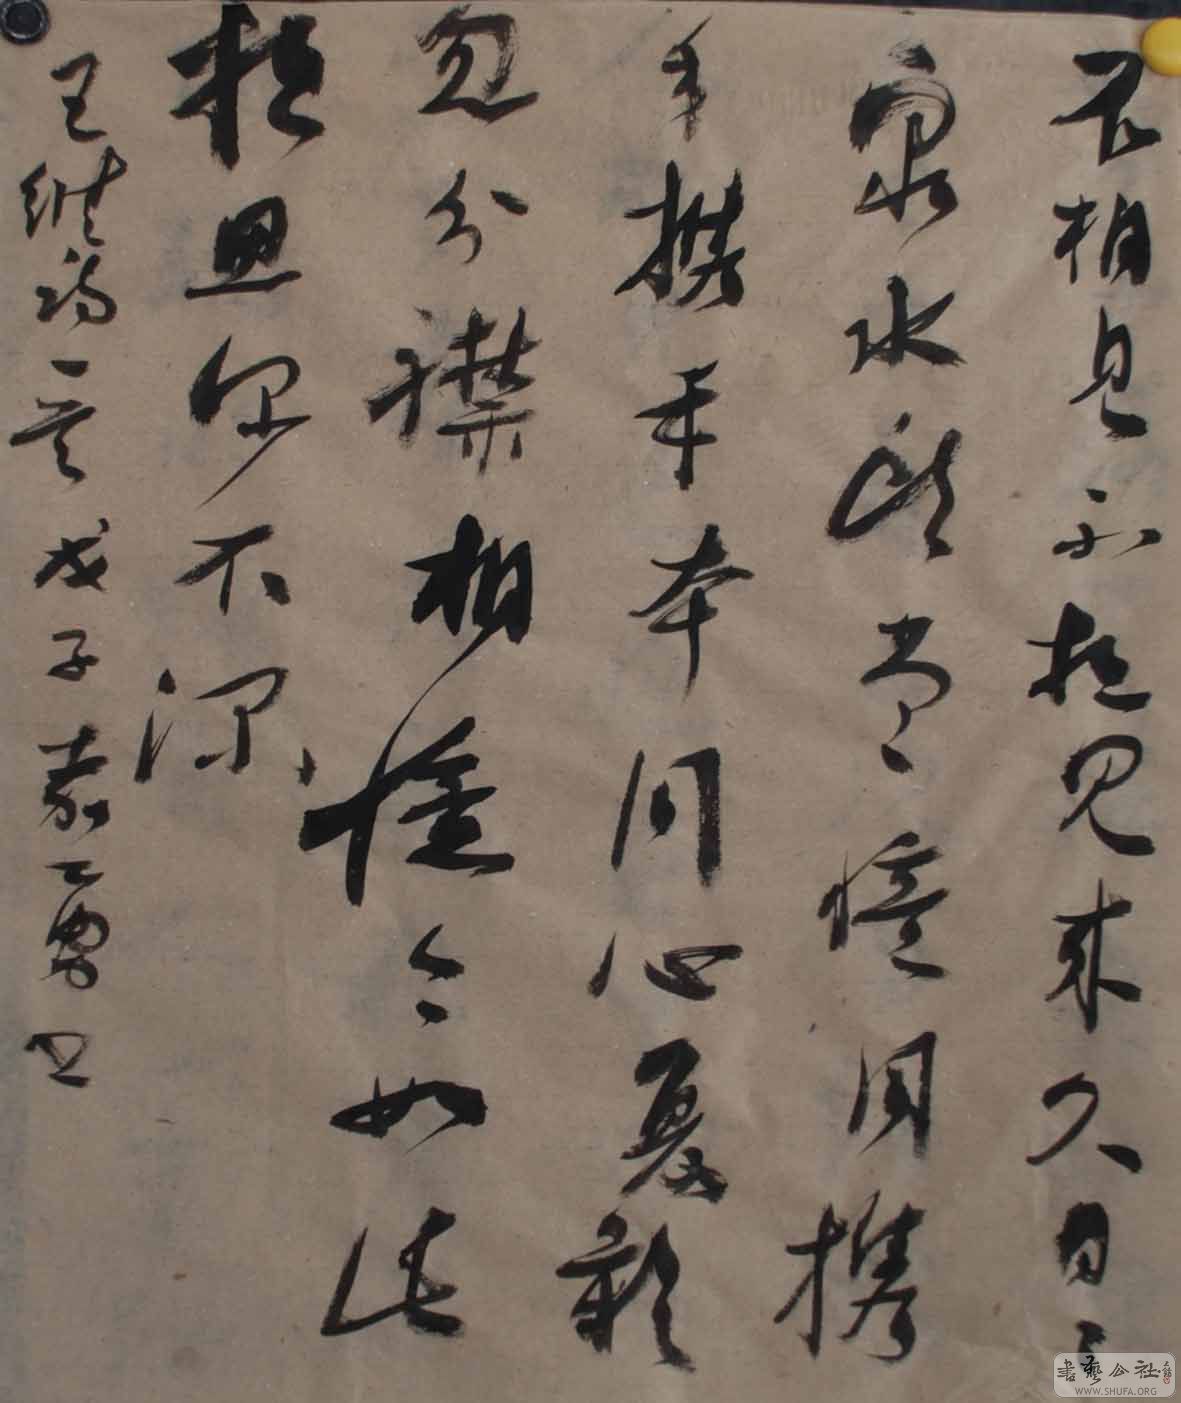 不相見不相見来久日日
泉水头常憶同携
手携手本同心复歎
忽分襟相憶今如此
相思深不深
王維詩一首戊子 书
書藝公社
WWW.SHUFA.ORG